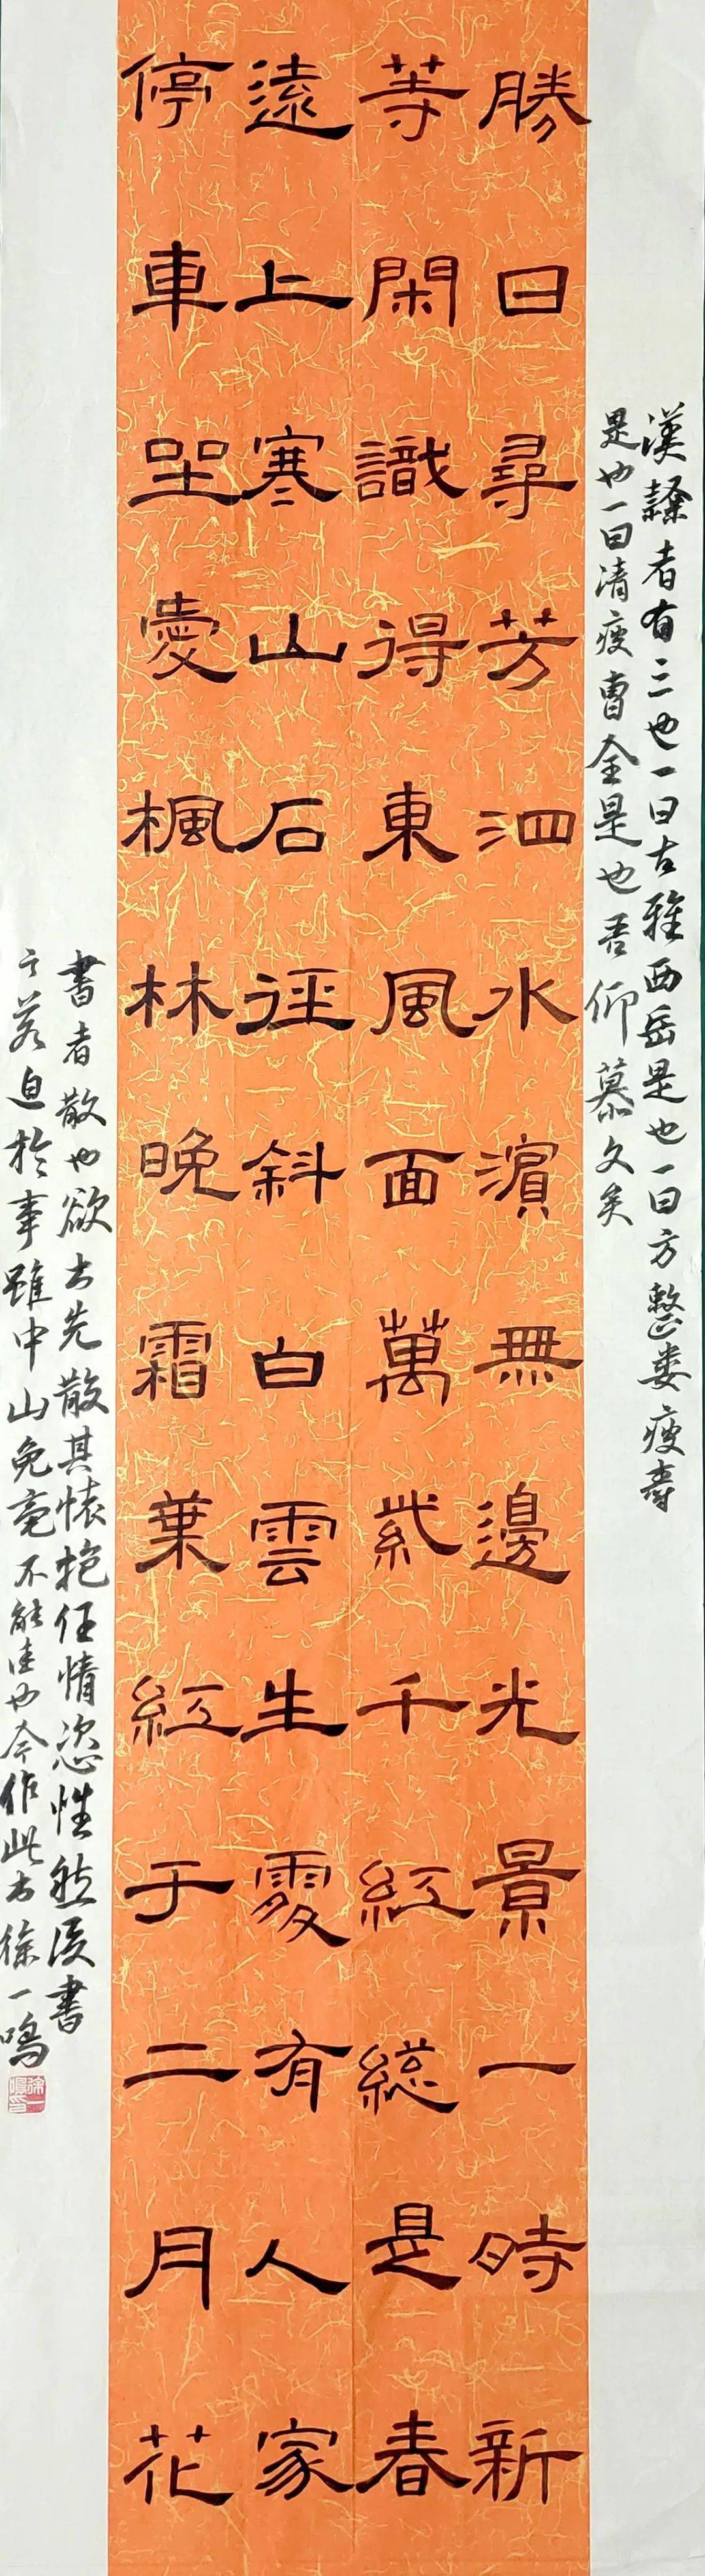 漢隸者有三也一曰古雅西岳是也一曰方整婁壽
是也一曰清瘦曹全是也吾仰慕久矣
勝日尋芳泗水濱無邊光景一時新
等閑識得東風面萬紫千紅總是春
遠上寒山石徑斜白雲生處有人家
停車坐愛楓林晚霜葉紅于二月花
書者散也欲書先散其懷抱任情恣性然後書
之若迫於事雖中山兔毫不能佳也今作此書徐一鳴